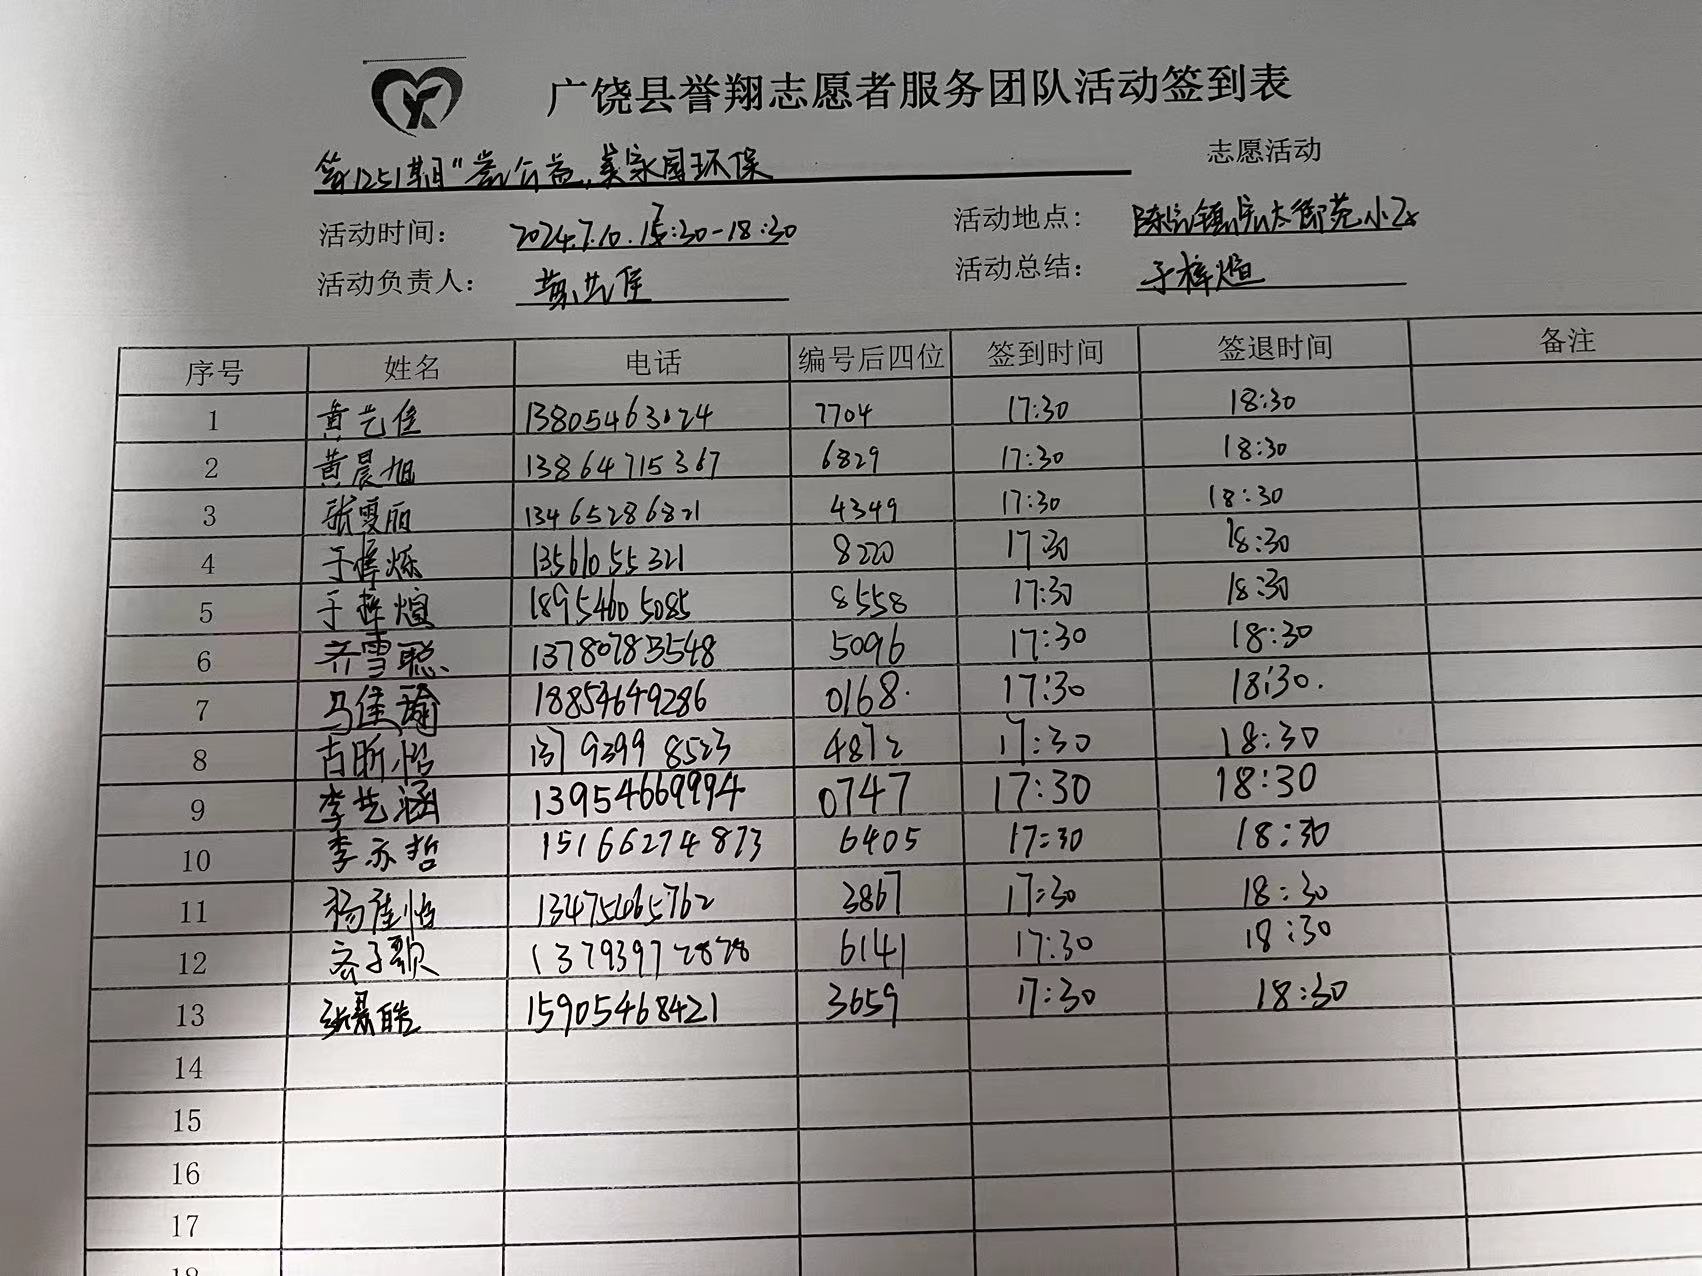 广饶县誉翔志愿者服务团队活动签到表
第1251期"誉公益,美家园环保 志愿活动
活动时间: 2024.7.10. :30-18:30 活动地点: 陈官镇 小区
活动负责人: 黄艺佳 活动总结: 于梓煊
序号 姓名 电话 编号后四位 签到时间 签退时间 备注
1 黄艺佳 13805463024 7704 17:30 18:30
2 黄晨旭 13864715367 6829 17:30 18:30
3 张雯丽 13465286821 4349 17:30 18:30
4 于梓烁 13561055321 8220 17:30 18:30
5 于梓煊 18954605085 8558 17:30 18:30
6 齐雪聪 13780783548 5096 17:30 18:30
7 马佳瑜 18854649286 0168. 17:30 18:30.
8 古昕怡 13793998523 4872 17:30 18:30
9 李艺涵 13954669994 0747 17:30 18:30
10 李亦哲 15166274873 6405 17:30 18:30
11 杨佳怡 13475465762 3867 17:30 18:30
12 子歌 13793972878 6141 17:30 18:30
13 张皓 15905468421 3659 17:30 18:30
14
15
16
17
18